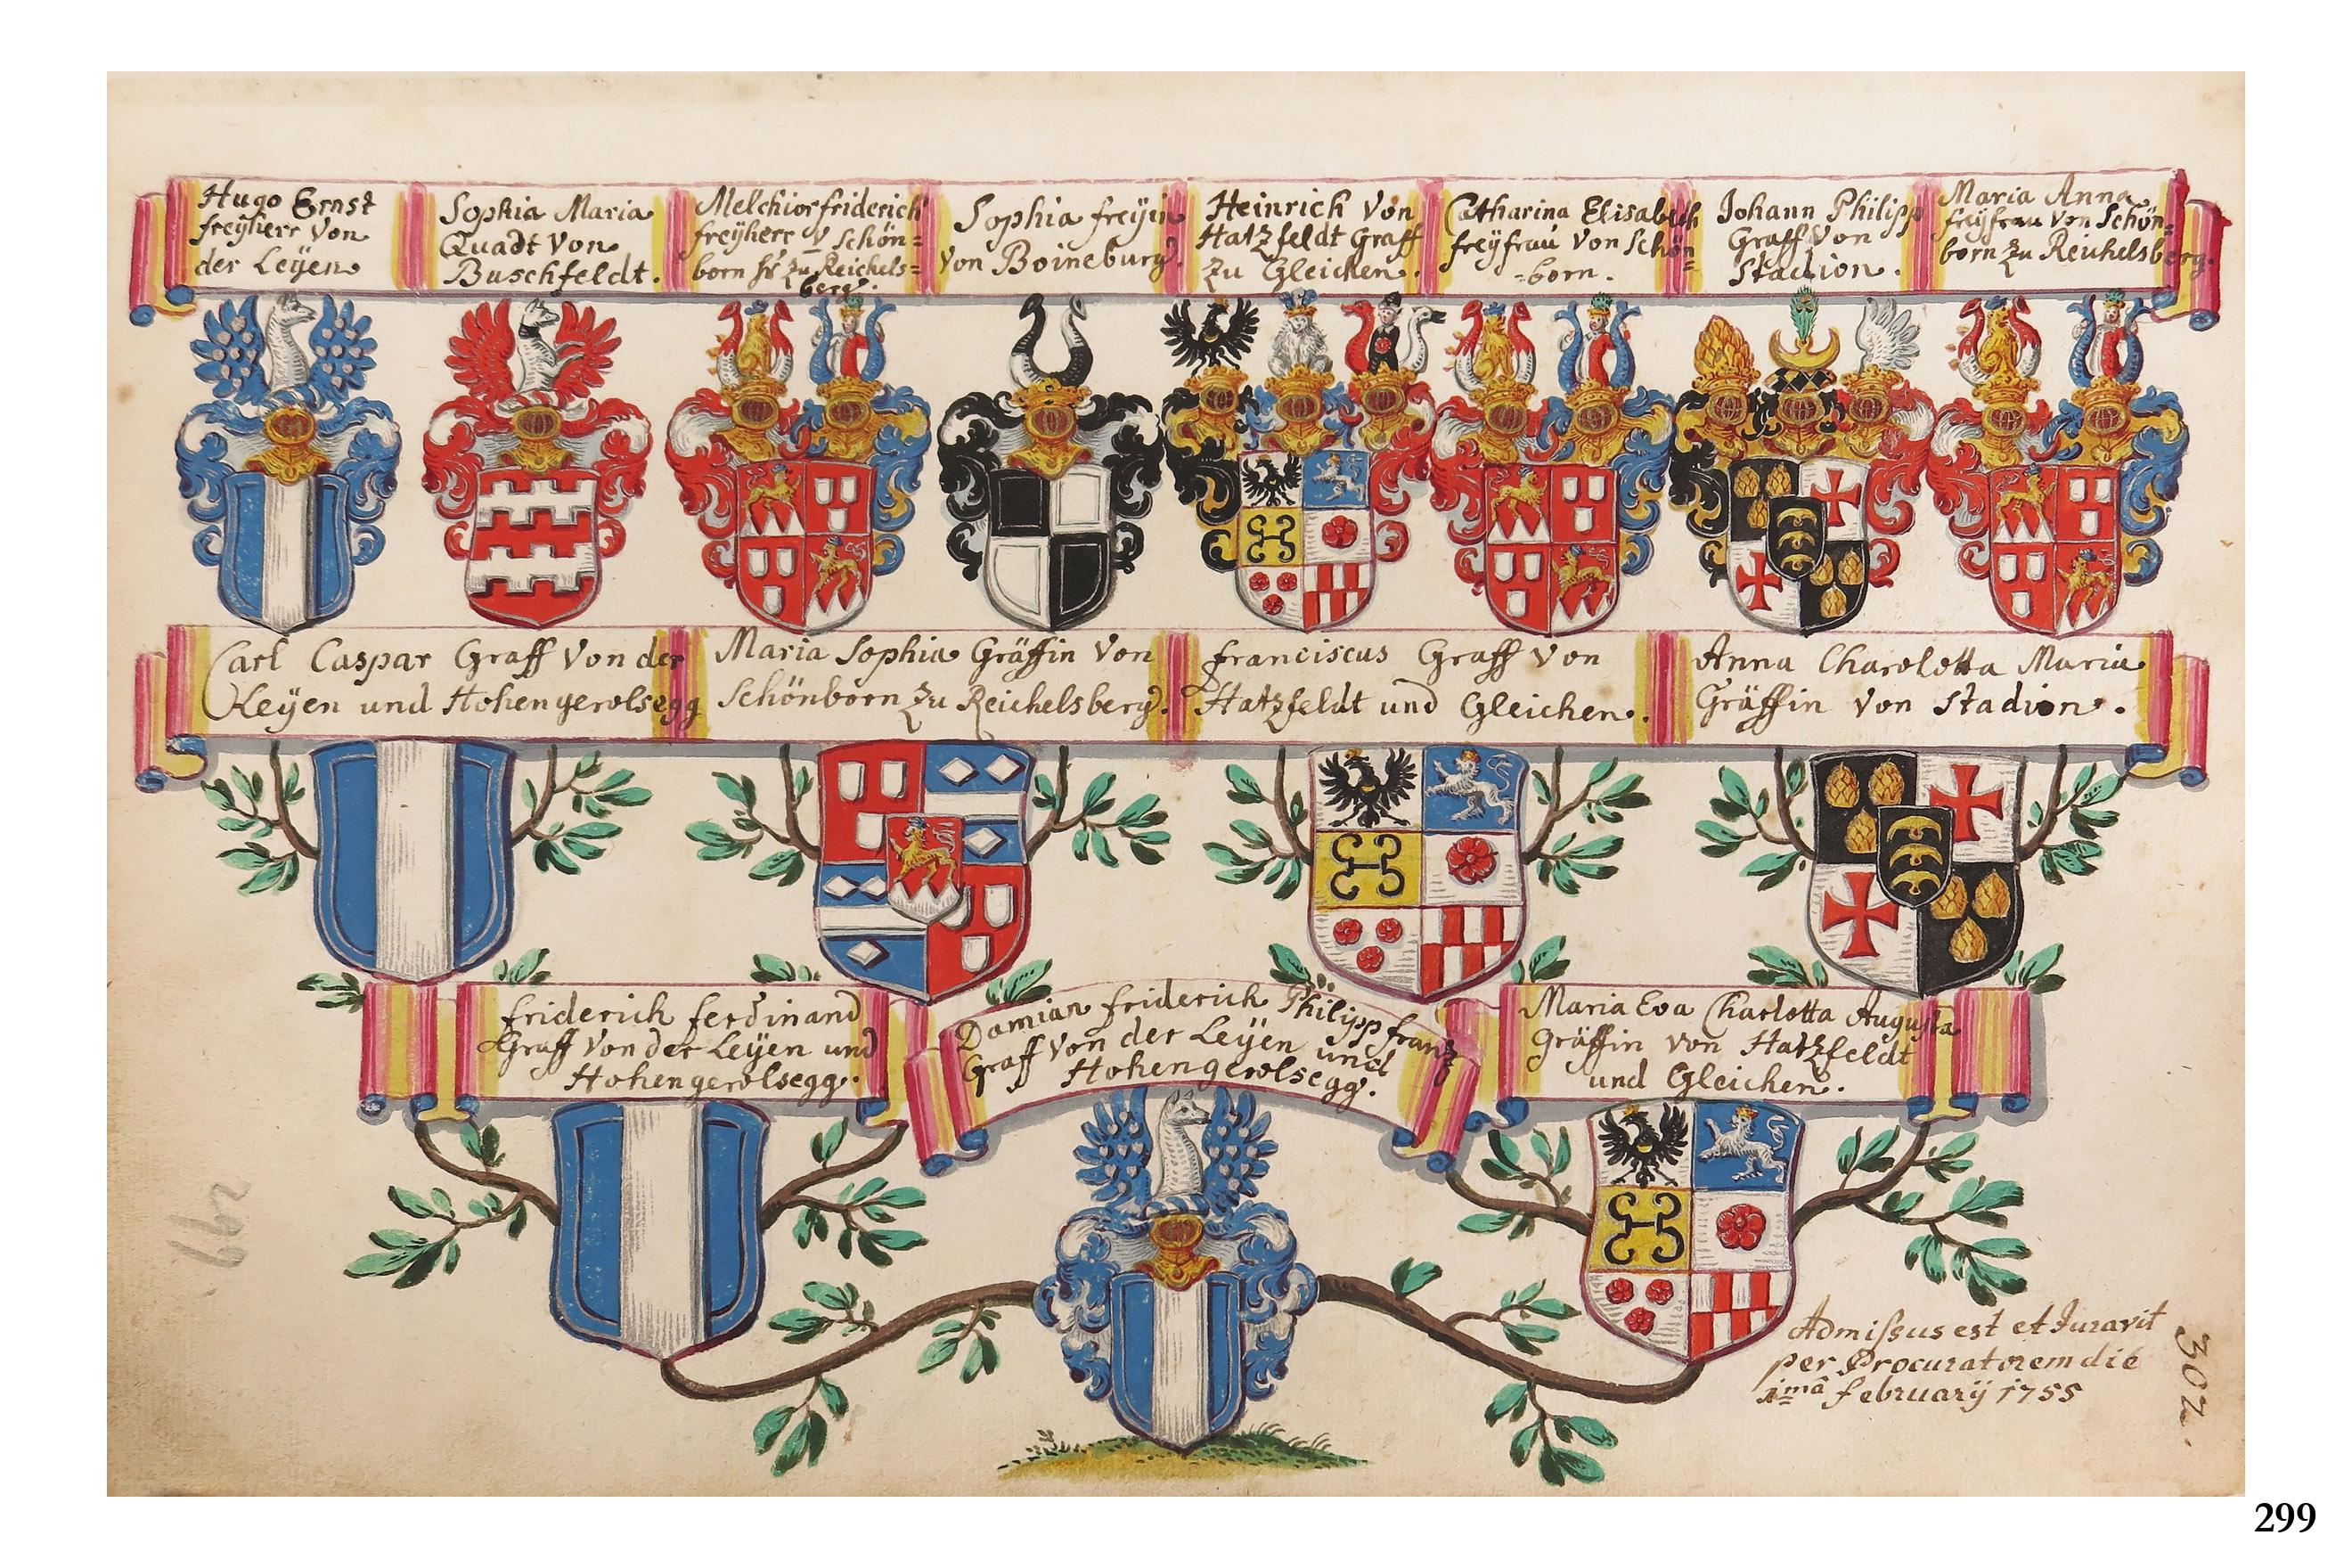 Hugo Ernst
freÿherr von
der Leÿen
Sophia Maria
Quadt von
Buschfeldt.
Melchior friderich
freÿherr v Schön=
born hr̃ zu Reichels=
berg.
Sophia freÿin
von Boineburg.
Heinrich von
Hatzfeldt Graff
zu Gleichen.
Catharina Elisabeth
freÿfrau von Schön=
=born.
Johann Philipp
Graff von
Stadion.
Maria Anna
freÿfrau von Schön=
born zu Reichelsberg.
Carl Caspar Graff von der
Leÿen und Hohengerolsegg
Maria Sophia Gräffin von
Schönborn zu Reichelsberg.
franciscus Graff von
Hatzfeldt und Gleichen.
Anna Charolotta Maria
Gräffin von Stadion.
friderich ferdinand
Graff von der Leÿen und
Hohengerolsegg.
Damian friderich Philipp frantz
Graff von der Leÿen und
Hohengerolsegg.
Maria Eva Charlotta Augusta
Gräffin von Hatzfeldt
und Gleichen.
Admissus est et Juravit
per Procuratorem die
1mâ februarÿ 1755
299
302.
299